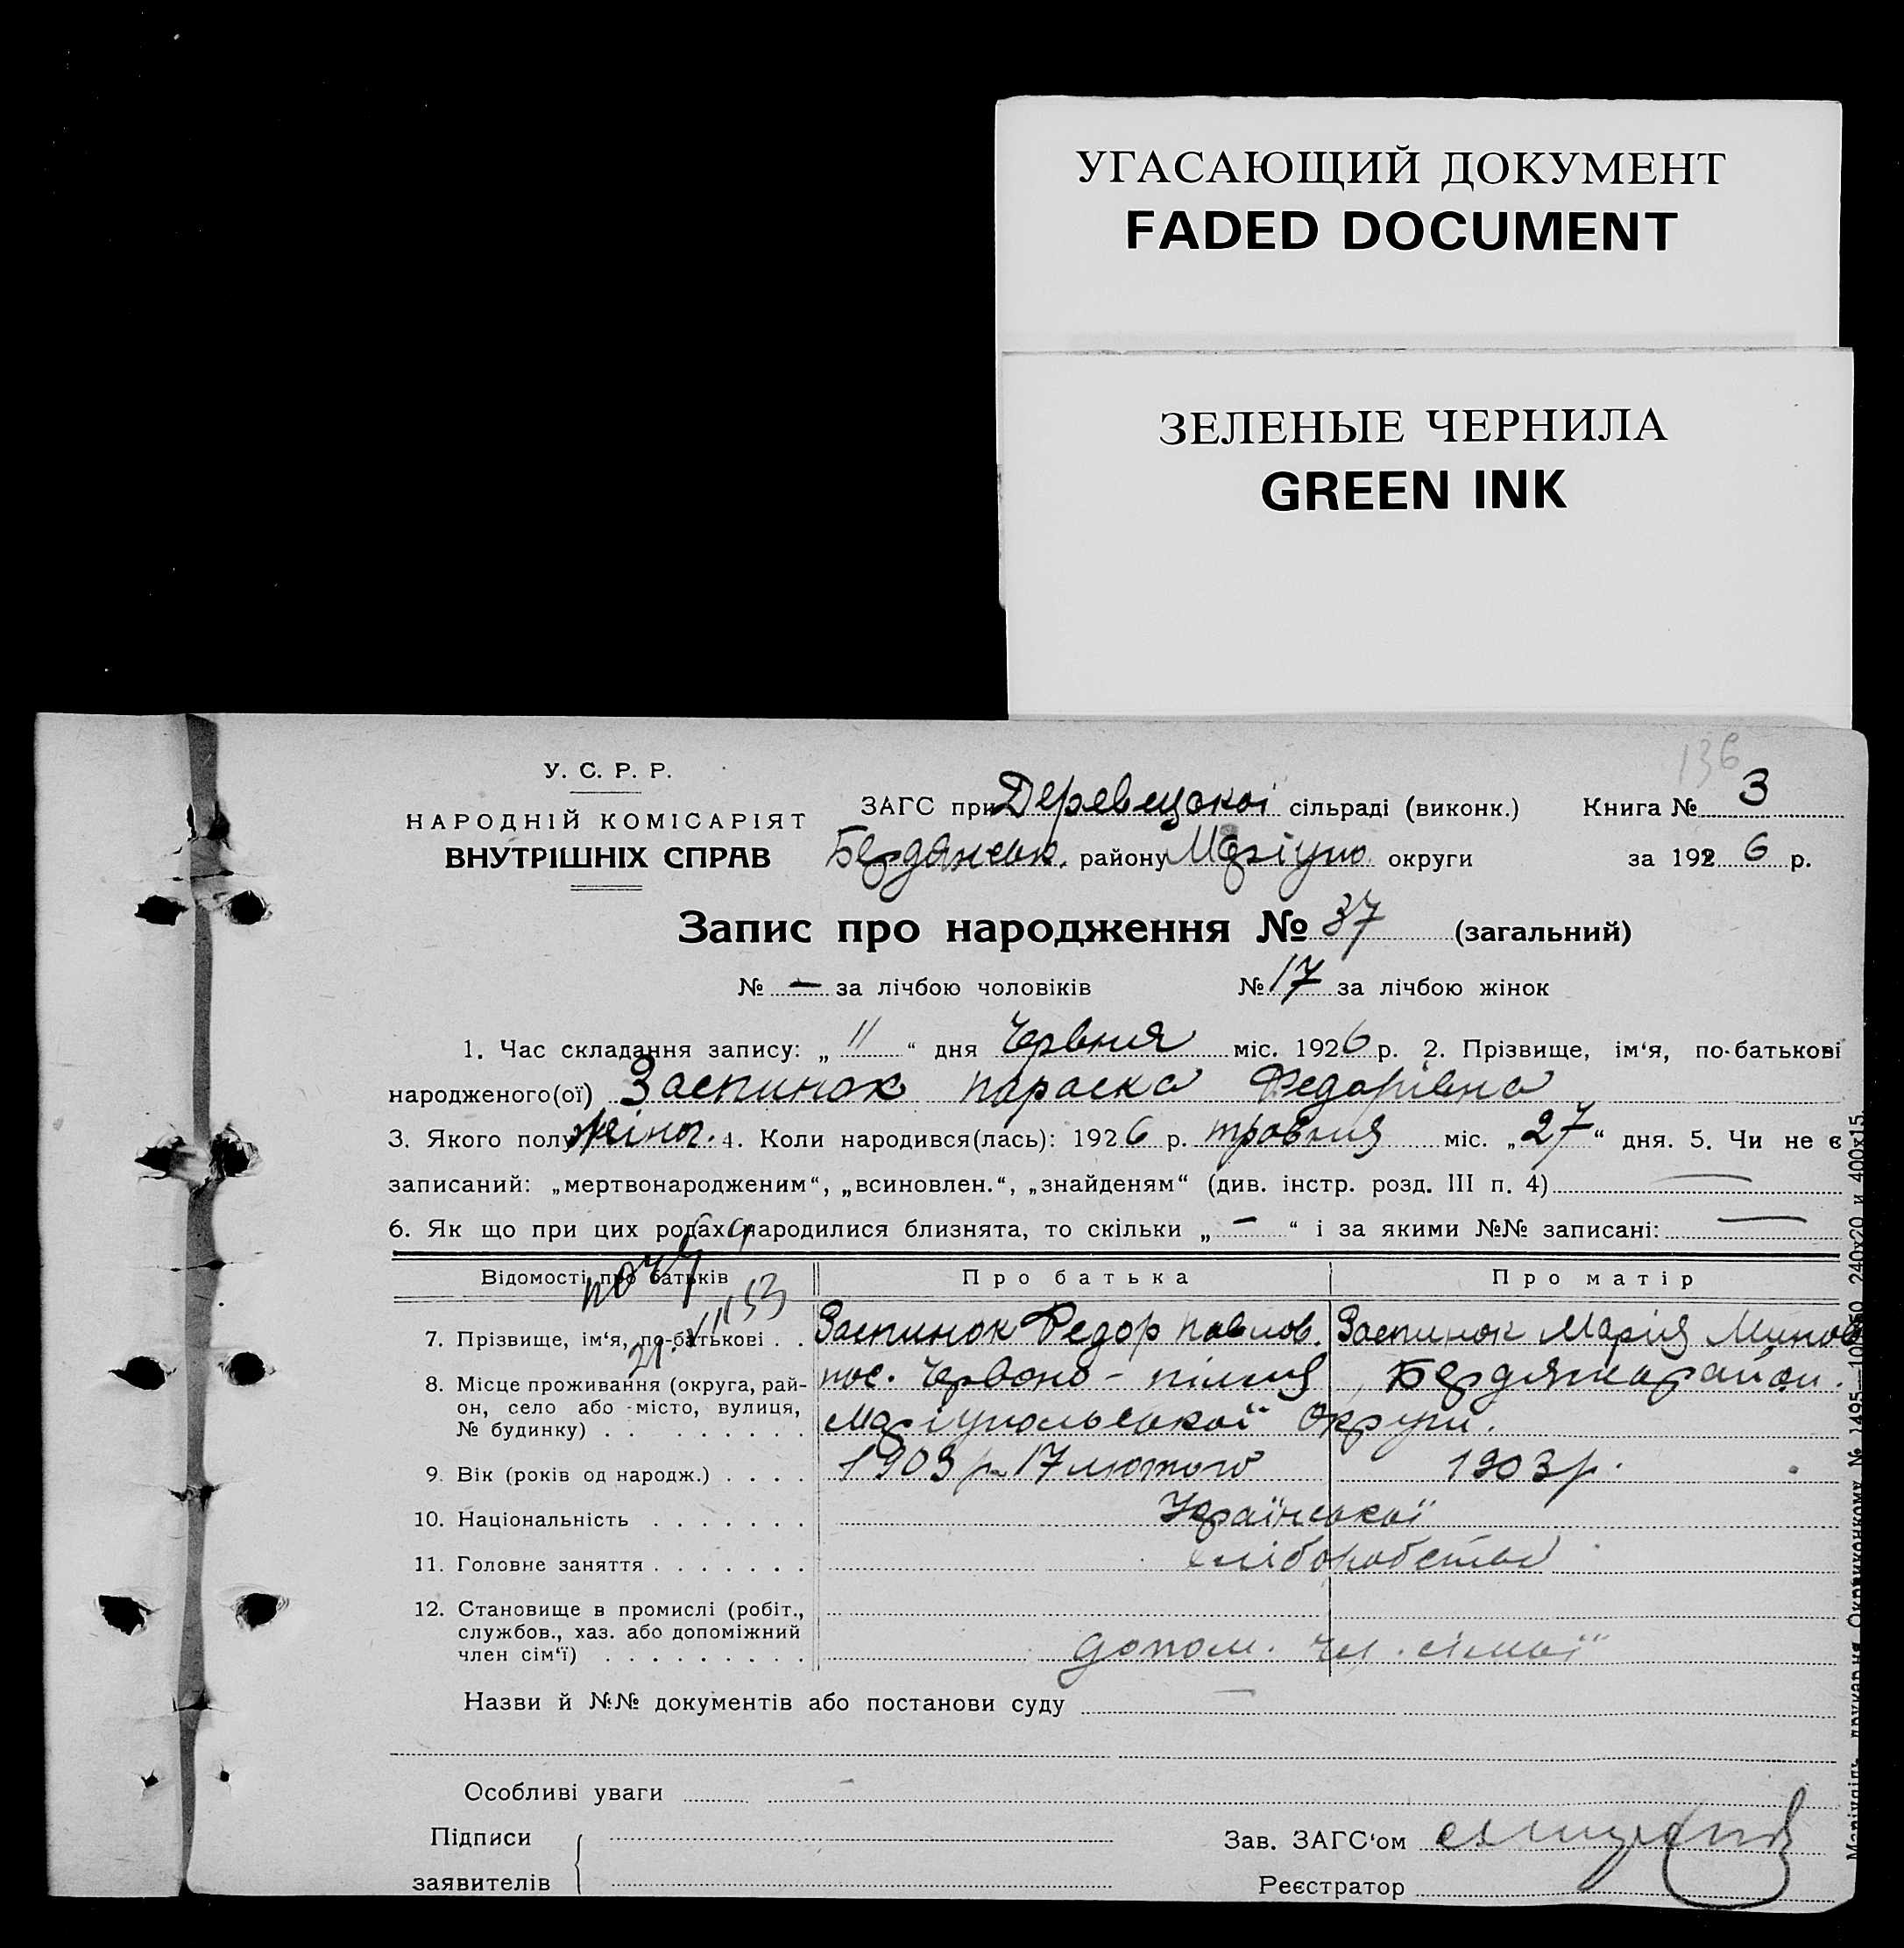 УГАСАЮЩИЙ ДОКУМЕНТ
FADED DOCUMENT
ЗЕЛЕНЫЕ ЧЕРНИЛА
GREEN INK
136
У. С. Р. Р.
НАРОДНІЙ КОМІСАРІЯТ
ВНУТРІШНІХ СПРАВ
ЗАГС при Деревецкої сільраді (виконк.) Книга № 3
Бердянськ. району Маріупо. округи за 1926 р.
Запис про народження № 37 (загальний)
№ — за лічбою чоловіків № 17 за лічбою жінок
1. Час складання запису: „ 11 “ дня Червня міс. 1926 р. 2. Прізвище, ім‘я, по-батькові
народженого(ої) Заспинок Параска Федорівна
3. Якого полу жіноч. 4. Коли народився(лась): 1926 р. травня міс. „ 27 “ дня. 5. Чи не є
записаний: „мертвонародженим“, „всиновлен.“, „знайденям“ (див. інстр. розд. III п. 4) —
6. Як що при цих родах народилися близнята, то скільки „ — “ і за якими №№ записані: —
Відомості про батьків Про батька Про матір
7. Прізвище, ім‘я, по-батькові . . Заспинок Федор Павлов. Заспинок Марія
8. Місце проживання (округа, рай-
он, село або місто, вулиця,
№ будинку) . . . . . . . . . пос. Червоно-
Маріупольської Округи.
9. Вік (років од народж.) . . . . 1903 р. 17 лютого 1903 р.
10. Національність . . . . . . . Української
11. Головне заняття . . . . . . . хліборобство
12. Становище в промислі (робіт.,
службов., хаз. або допоміжний
член сім‘ї) . . . . . . . . . допом. чл. сімьї
Назви й №№ документів або постанови суду —
Особливі уваги —
Підписи
заявителів
Зав. ЗАГС‘ом
Реєстратор
Маріупіль, друкарня Окрвиконкому № 1495—10050 240х20 и 400х15